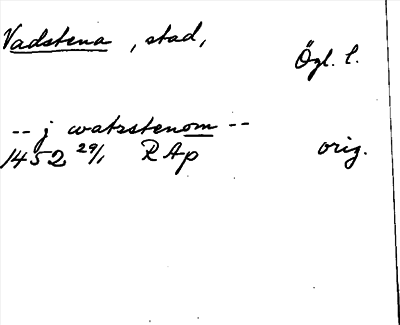 Vadstena, stad,
Ögl. l.
-- j watzstenom --
1452 29/1 RAp orig.